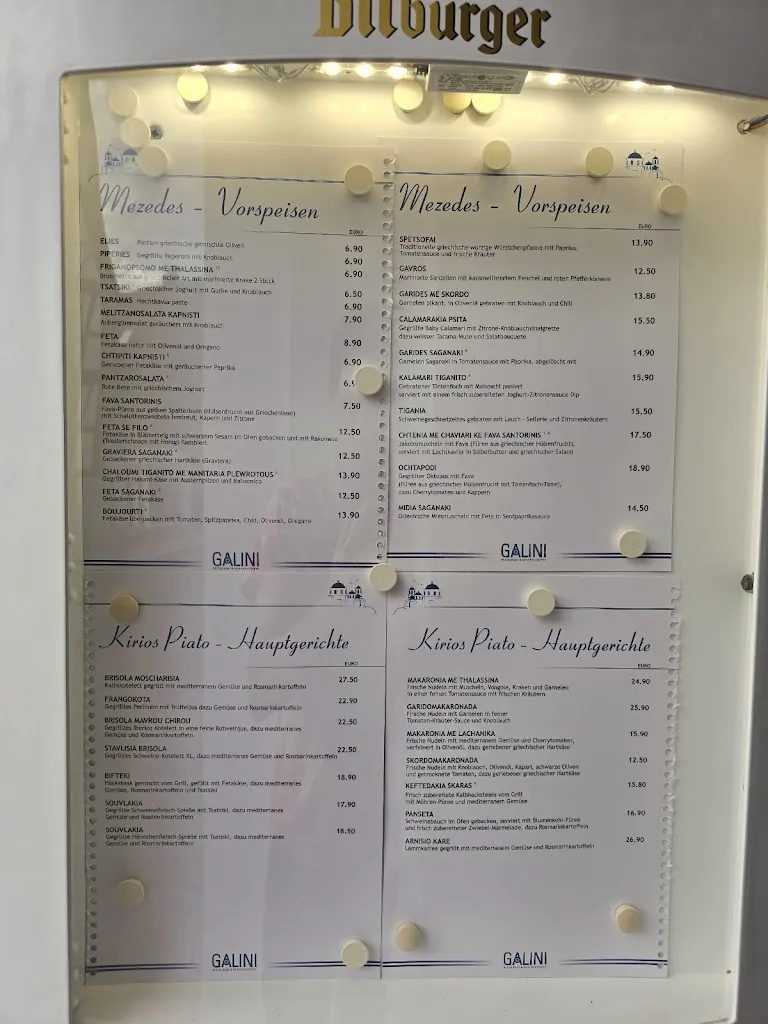 Bitburger
Mezedes - Vorspeisen
EURO
ELIES Portion griechische gemischte Oliven 6,90
PIPERIES Gegrillte Peperoni mit Knoblauch 6.90
FRIGANOPSOMO ME THALASSINA 6.90
Bruschetta auf griechischen Art mit marinierte Krake 2 Stück
TSATSIKI Griechischer Joghurt mit Gurke und Knoblauch 6.50
TARAMAS Hechtkaviarpaste 6.90
MELITZANOSALATA KAPNISTI 7.90
Auberginensalat geräuchert mit Knoblauch
FETA 8.90
Fetakäse natur mit Olivenöl und Oregano
CHTIPITI KAPNISTI 6.90
Geriebener Fetakäse mit geräucherter Paprika
PANTZAROSALATA
Rote Bete mit griechischem Joghurt
FAVA SANTORINIS 7.50
Fava-Püree aus gelben Spalterbsen (Hülsenfrucht aus Griechenland)
mit Schalottenzwiebeln bestreut, Kapern und Zitrone
FETA SE FILO 12.50
Fetakäse in Blätterteig mit schwarzem Sesam im Ofen gebacken und mit Rakomelo
(Tresterschnaps mit Honig) flambiert
GRAVIERA SAGANAKI 12.50
Gebackener griechischer Hartkäse (Graviera)
CHALOUMI TIGANITO ME MANITARIA PLEWROTOUS 13.90
Gegrillter Halumi-Käse mit Austernpilzen und Balsamico
FETA SAGANAKI 12.50
Gebackener Fetakäse
BOUJOURTI 13.90
Fetakäse überbacken mit Tomaten, Spitzpaprika, Chili, Olivenöl, Oregano
GALINI
Mezedes - Vorspeisen
EURO
SPETSOFAI 13,90
Traditionelle griechische würzige Würstchenpfanne mit Paprika,
Tomatensauce und frische Kräuter
GAVROS 12.50
Marinierte Sardellen mit karamellisiertem Fenchel und roten Pfefferkörnern
GARIDES ME SKORDO 13.80
Garnelen pikant, in Olivenöl gebraten mit Knoblauch und Chili
CALAMARAKIA PSITA 15.50
Gegrillte Baby Calamari mit Zitrone-Knoblauchvinaigrette
dazu weisser Tarama Muse und Salatbouquete
GARIDES SAGANAKI 14.90
Garnelen Saganaki in Tomatensauce mit Paprika, abgelöscht mit
KALAMARI TIGANITO 15.90
Gebratener Tintenfisch mit Maismehl paniert
serviert mit einem frisch zubereiteten Joghurt-Zitronensauce Dip
TIGANIA 15.50
Schweinegeschnetzeltes gebraten mit Lauch - Sellerie und Zitronenkräutern
CHTENIA ME CHAVIARI KE FAVA SANTORINIS 17.50
Jakobsmuscheln mit Fava (Püree aus griechischer Hülsenfrucht),
serviert mit Lachskaviar in Salbeibutter und griechischer Salami
OCHTAPODI 18.90
Gegrillter Oktopus mit Fava
(Püree aus griechischer Hülsenfrucht mit Tintenfisch-Tinte),
dazu Cherrytomaten und Kappern
MIDIA SAGANAKI 14.50
Griechische Miesmuscheln mit Feta in Senfpaprikasauce
GALINI
Kirios Piato - Hauptgerichte
EURO
BRISOLA MOSCHARISIA 27.50
Kalbskotelett gegrillt mit mediterranem Gemüse und Rosmarinkartoffeln
FRANGOKOTA 22.90
Gegrilltes Perlhuhn mit Trüffeljus dazu Gemüse und Rosmarinkartoffeln
BRISOLA MAVROU CHIROU 22.50
Gegrilltes Iberico Kotelett in eine feine Rotweinjus, dazu mediterranes
Gemüse und Rosmarinkartoffeln
STAVLISIA BRISOLA 22.50
Gegrilltes Schweine-Kotelett XL, dazu mediterranes Gemüse und Rosmarinkartoffeln
BIFTEKI 18.90
Hacksteak gemischt vom Grill, gefüllt mit Fetakäse, dazu mediterranes
Gemüse, Rosmarinkartoffeln und Tsatsiki
SOUVLAKIA 17.90
Gegrillte Schweinefleisch-Spieße mit Tsatsiki, dazu mediterranes
Gemüse und Rosmarinkartoffeln
SOUVLAKIA 18.50
Gegrillte Hähnchenfleisch-Spieße mit Tsatsiki, dazu mediterranes
Gemüse und Rosmarinkartoffeln
GALINI
Kirios Piato - Hauptgerichte
EURO
MAKARONIA ME THALASSINA 24.90
Frische Nudeln mit Muscheln, Vongole, Kraken und Garnelen
in einer feinen Tomatensauce mit frischen Kräutern
GARIDOMAKARONADA 25.90
Frische Nudeln mit Garnelen in feiner
Tomaten-Kräuter-Sauce und Knoblauch
MAKARONIA ME LACHANIKA 15.90
Frische Nudeln mit mediterranem Gemüse und Cherrytomaten,
verfeinert in Olivenöl, dazu geriebener griechischer Hartkäse
SKORDOMAKARONADA 12.50
Frische Nudeln mit Knoblauch, Olivenöl, Kapari, schwarze Oliven
und getrocknete Tomaten, dazu geriebener griechischer Hartkäse
KEFTEDAKIA SKARAS 15.80
Frisch zubereitete Kalbhacksteaks vom Grill
mit Möhren-Püree und mediterranem Gemüse
PANSETA 16.90
Schweinebauch im Ofen gebacken, serviert mit Blumenkohl-Püree
und frisch zubereiteter Zwiebel-Marmelade, dazu Rosmarinkartoffeln
ARNISIO KARE 26.90
Lammkarree gegrillt mit mediterranem Gemüse und Rosmarinkartoffeln
GALINI